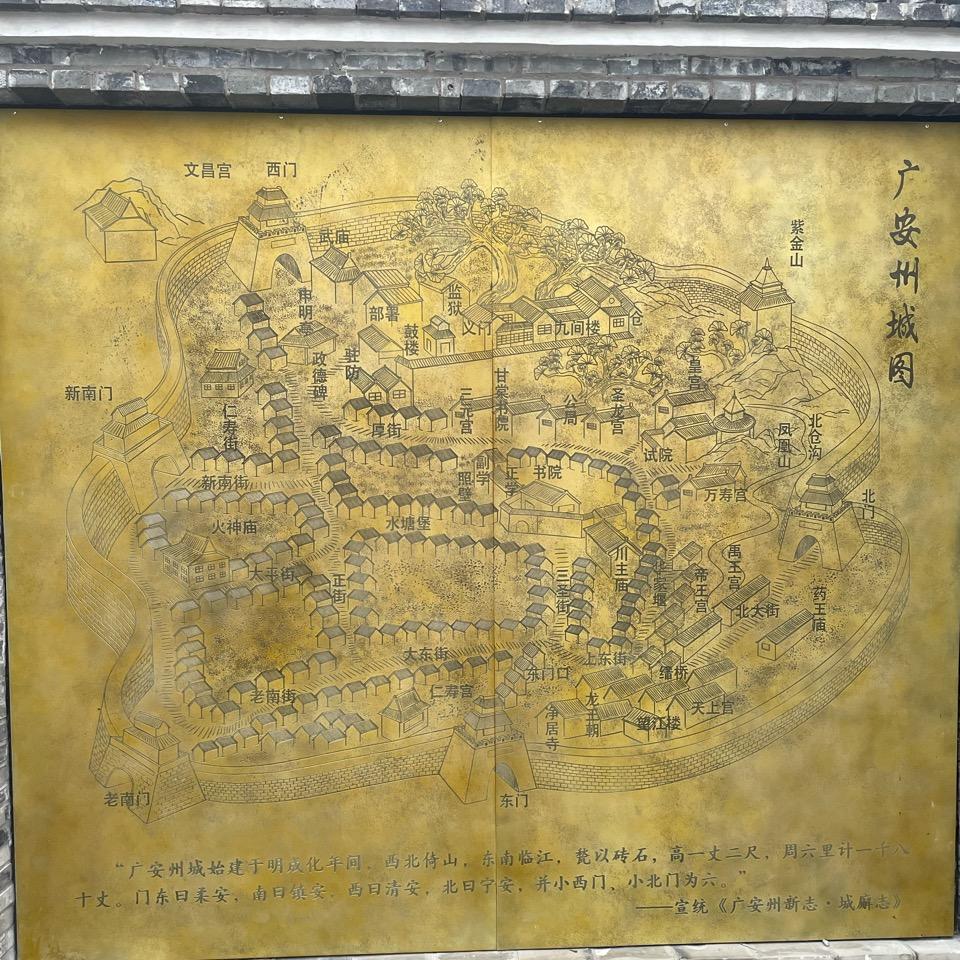 广安州城图
文昌宫
西门
紫金山
武庙
申明亭
部署
监狱
义门
九间楼
仓
鼓楼
驻防
政德碑
皇宫
新南门
仁寿街
厚街
三元宫
甘棠书院
公局
圣龙宫
试院
凤凰山
北仓沟
新南街
照壁
副学
正学
书院
万寿宫
北门
火神庙
水塘堡
川主庙
禹王宫
太平街
正街
三圣街
帝王宫
北大街
药王庙
大东街
东门口
上东街
缙桥
老南街
仁寿宫
净居寺
龙王朝
望江楼
天上宫
老南门
东门
“广安州城始建于明成化年间，西北倚山，东南临江，甃以砖石，高一丈二尺，周六里计一千八
十丈。门东曰柔安，南曰镇安，西曰清安，北曰宁安，并小西门、小北门为六。”
——宣统《广安州新志·城廨志》